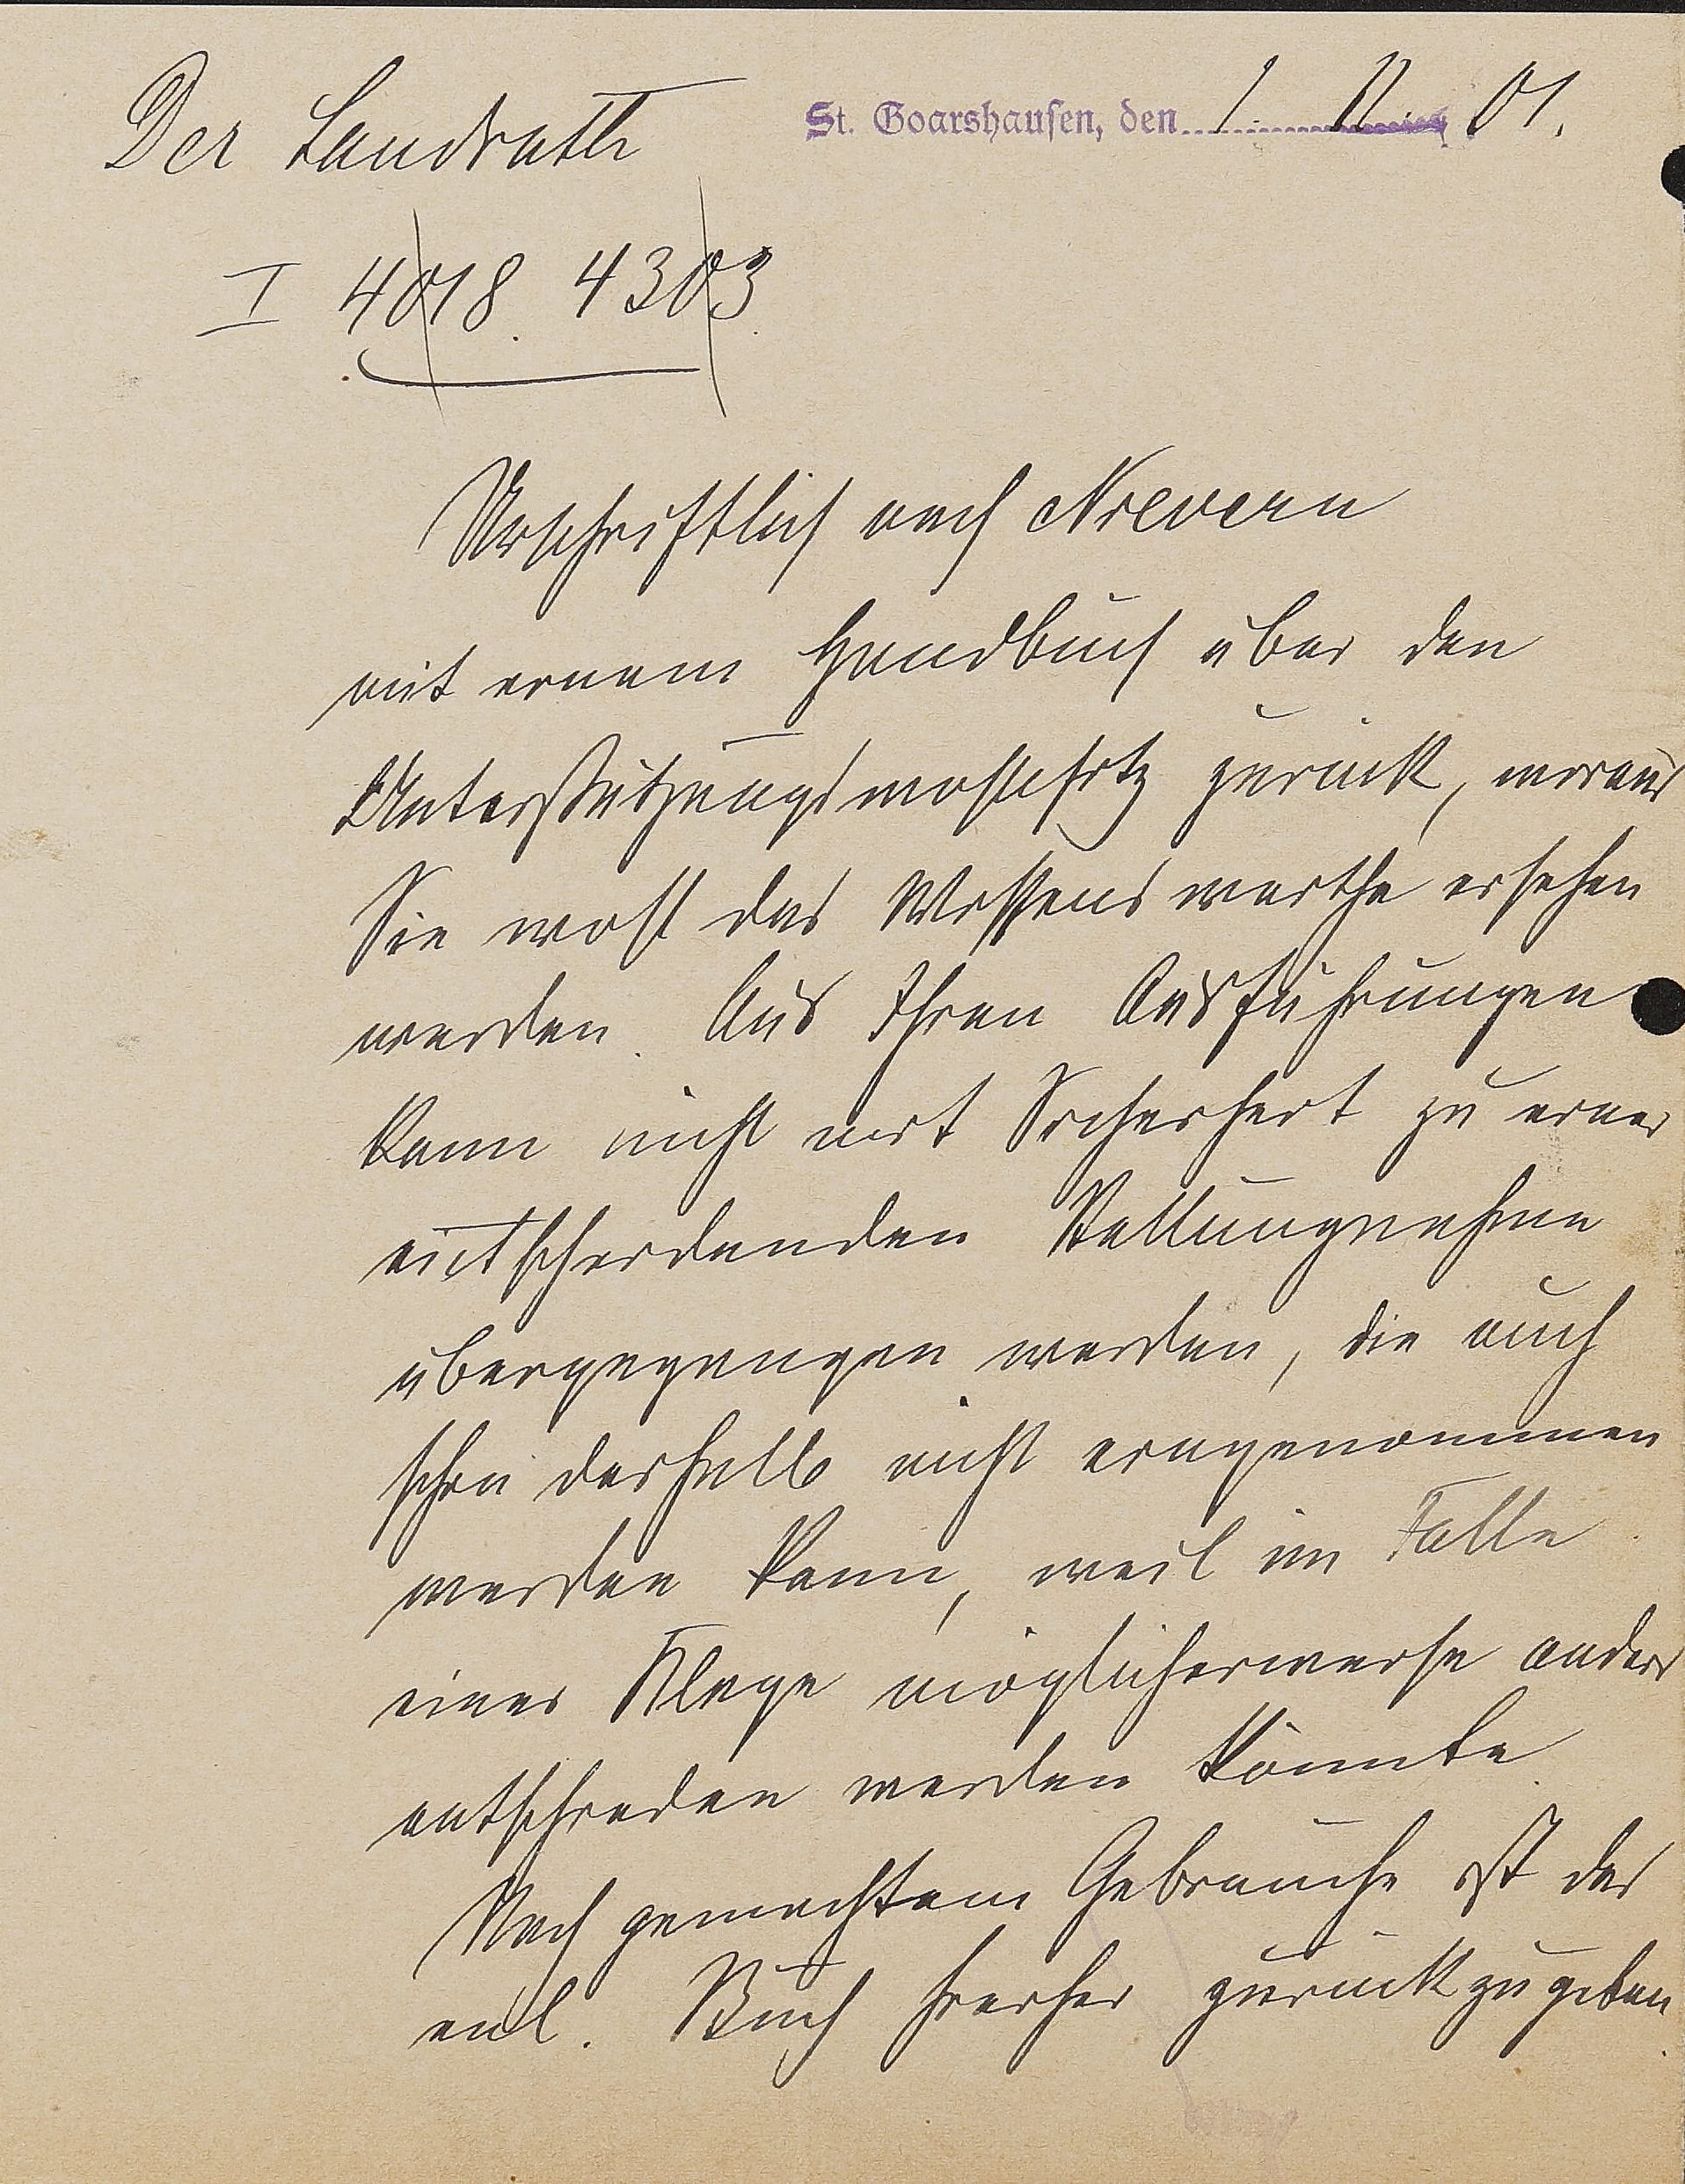 Der Landrath
St. Goarshausen, den 1. 11. 01.
I 4018. 4303.
Urschriftlich nach Nievern
mit einem Handbuch über den
Unterstützungswohnsitz zurück, woraus
Sie wohl das Wissenswerthe ersehen
werden. Aus Ihren Ausführungen
kann nicht mit Sicherheit zu einer
entscheidenden Stellungnahme
übergegangen werden, die auch
schon deshalb nicht eingenommen
werden kann, weil im Falle
einer Klage möglicherweise anders
entschieden werden könnte.
Nach gemachtem Gebrauche ist das
anl. Buch hierher zurückzugeben.